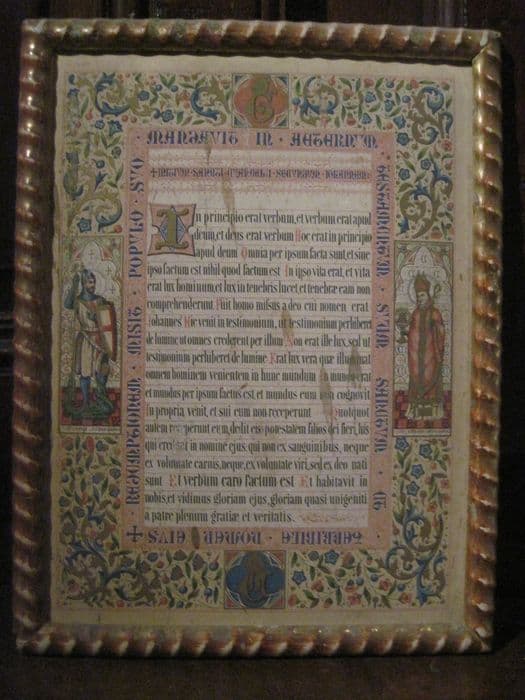 ✝ REDEMPTIONEM · MISIT · POPULO · SUO
· MANDAVIT · IN · AETERNUM ·
TESTAMENTUM · SUUM · SANCTUM · ET
TERRIBILE · NOMEN · EIUS
✝ INITIUM · SANCTI · EVANGELII · SECUNDUM · JOHANNEM
In principio erat verbum, et verbum erat apud
deum, et deus erat verbum Hoc erat in principio
apud deum Omnia per ipsum facta sunt, et sine
ipso factum est nihil quod factum est In ipso vita erat, et vita
erat lux hominum, et lux in tenebris lucet, et tenebræ eam non
comprehenderunt Fuit homo missus a deo cui nomen erat
Johannes Hic venit in testimonium, ut testimonium perhiberet
de lumine ut omnes crederent per illum Non erat ille lux, sed ut
testimonium perhiberet de lumine Erat lux vera quæ illuminat
omnem hominem venientem in hunc mundum In mundo erat
et mundus per ipsum factus est, et mundus eum non cognovit
In propria venit, et sui eum non receperunt Quotquot
autem receperunt eum, dedit eis potestatem filios dei fieri, his
qui credunt in nomine ejus, qui non ex sanguinibus, neque
ex voluntate carnis, neque, ex voluntate viri, sed, ex deo nati
sunt Et verbum caro factum est Et habitavit in
nobis, et vidimus gloriam ejus, gloriam quasi unigeniti
a patre plenum gratiæ et veritatis.